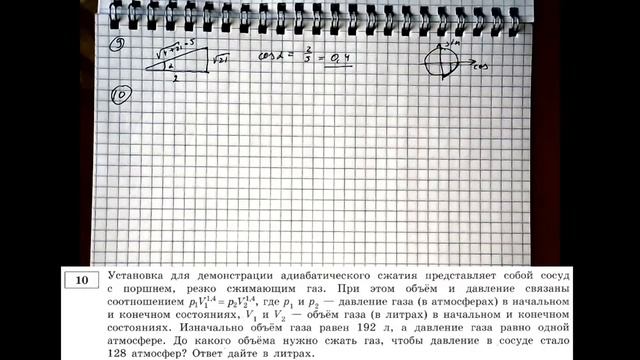 9
√4+21=5
√21
2
α
cos α = 2/5 = 0,4
sin
cos
10
10 Установка для демонстрации адиабатического сжатия представляет собой сосуд
с поршнем, резко сжимающим газ. При этом объём и давление связаны
соотношением p₁V₁^1,4 = p₂V₂^1,4, где p₁ и p₂ — давление газа (в атмосферах) в начальном
и конечном состояниях, V₁ и V₂ — объём газа (в литрах) в начальном и конечном
состояниях. Изначально объём газа равен 192 л, а давление газа равно одной
атмосфере. До какого объёма нужно сжать газ, чтобы давление в сосуде стало
128 атмосфер? Ответ дайте в литрах.